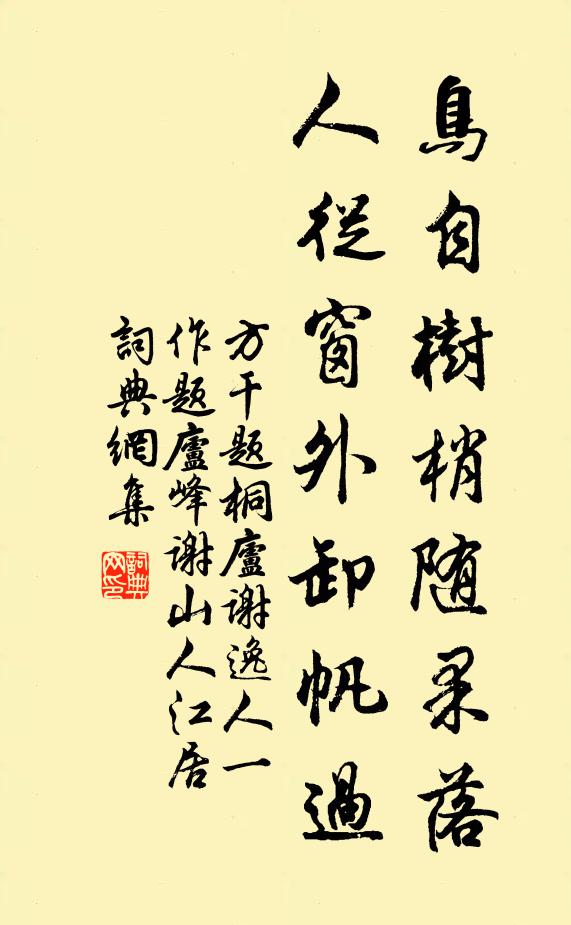 鳥自樹梢随果落
人從窗外卸帆過
方干题桐廬谢逸人一
作题廬峰谢山人江居
詞典網集
詞典
网印